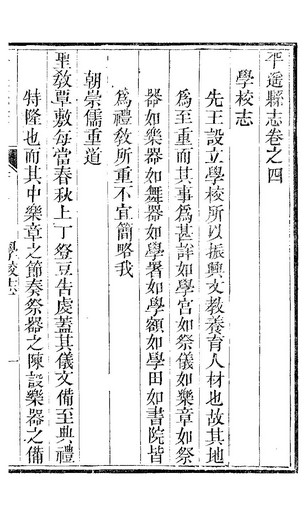 平遙縣志卷之四
學校志
先王設立學校所以振興文教養育人材也故其地
為至重而其事為甚詳如學宮如祭儀如樂章如祭
器如樂器如舞器如學署如學額如學田如書院皆
為禮教所重不宜簡略我
朝崇儒重道
聖教覃敷每當春秋上丁祭豆告虔蓋其儀文備至典禮
特隆也而其中樂章之節奏祭器之陳設樂器之備
學校志